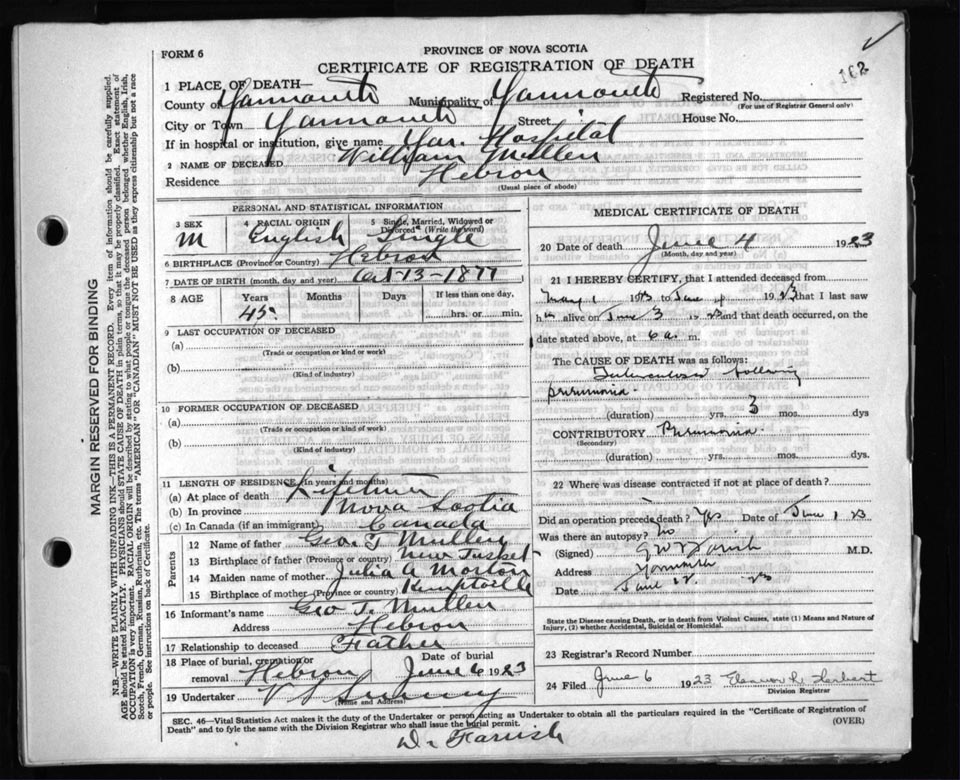 162
FORM 6
PROVINCE OF NOVA SCOTIA
CERTIFICATE OF REGISTRATION OF DEATH
1 PLACE OF DEATH—
County of Yarmouth Municipality of Yarmouth Registered No.
(For use of Registrar General only)
City or Town Yarmouth Street House No.
If in hospital or institution, give name Yar. Hospital
2 NAME OF DECEASED William Mullen
Residence Hebron
(Usual place of abode)
PERSONAL AND STATISTICAL INFORMATION
3 SEX 4 RACIAL ORIGIN 5 Single, Married, Widowed or Divorced (Write the word)
M English Single
6 BIRTHPLACE (Province or Country) Hebron
7 DATE OF BIRTH (month, day, and year) Oct-13-1877
8 AGE Years Months Days If less than one day,
45 hrs. or min.
9 LAST OCCUPATION OF DECEASED
(a)
(Trade or occupation or kind or work)
(b)
(Kind of industry)
10 FORMER OCCUPATION OF DECEASED
(a)
(Trade or occupation or kind of work)
(b)
(Kind of industry)
11 LENGTH OF RESIDENCE (in years and months)
(a) At place of death Lifetime
(b) In province Nova Scotia
(c) In Canada (if an immigrant) Canada
Parents
12 Name of father Geo T Mullen
13 Birthplace of father (Province or country) New Tusket
14 Maiden name of mother Julia A Morton
15 Birthplace of mother (Province or country) Kemptville
16 Informant's name Geo T. Mullen
Address Hebron
17 Relationship to deceased Father
18 Place of burial, cremation or removal Hebron Date of burial June 6 1923
19 Undertaker V S
(Name and Address)
MEDICAL CERTIFICATE OF DEATH
20 Date of death June 4 1923
(Month, day and year)
21 I HEREBY CERTIFY, that I attended deceased from
May 1 1923 to June 4 1923 that I last saw
h alive on June 3 1923 and that death occurred, on the
date stated above, at 6 a. m.
The CAUSE OF DEATH was as follows:
Tuberculosis following
pneumonia
(duration) yrs. 3 mos. dys
CONTRIBUTORY Pneumonia.
(Secondary)
(duration) yrs. mos. dys
22 Where was disease contracted if not at place of death?
Did an operation precede death? Yes Date of June 1 23
Was there an autopsy? No
(Signed) Farish M.D.
Address Yarmouth
Date June 23
State the Disease causing Death, or in death from Violent Causes, state (1) Means and Nature of Injury, (2) whether Accidental, Suicidal or Homicidal.
23 Registrar's Record Number
24 Filed June 6 1923 Eleanor R Herbert
Division Registrar
SEC. 46—Vital Statistics Act makes it the duty of the Undertaker or person acting as Undertaker to obtain all the particulars required in the "Certificate of Registration of
Death" and to fyle the same with the Division Registrar who shall issue the burial permit. (OVER)
Dr Farish
MARGIN RESERVED FOR BINDING
N.B.—WRITE PLAINLY WITH UNFADING INK—THIS IS A PERMANENT RECORD. Every item of information should be carefully supplied.
AGE should be stated EXACTLY. PHYSICIANS should STATE CAUSE OF DEATH in plain terms, so that it may be properly classified. Exact statement of
OCCUPATION is very important. RACIAL ORIGIN will be described by stating to what people or tongue the deceased person belonged whether English, Irish,
Scotch, French, German, Russian, Ruthenian, etc. The terms "AMERICAN" OR "CANADIAN" MUST NOT BE USED as they express citizenship but not a race
or people. See instructions on back of Certificate.